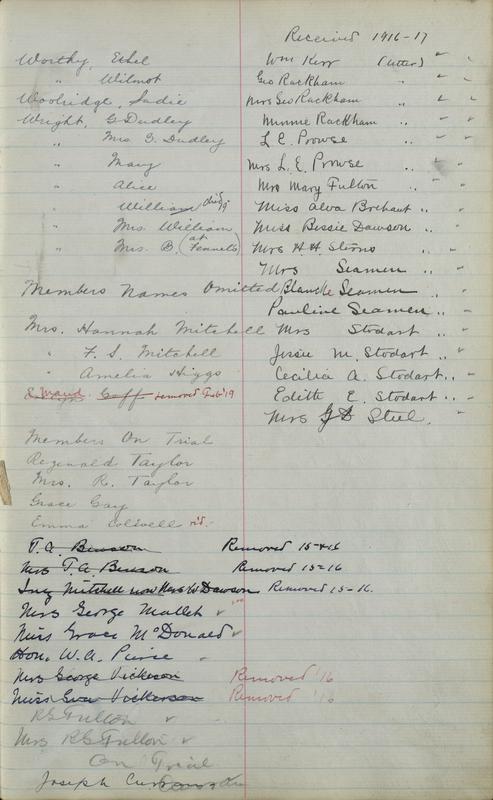 Received 1916-17
Worthy, Ethel
" Wilmot
Woolridge, Sadie
Wright, G Dudley
" Mrs G. Dudley
" Mary
" Alice
" William died 19
" Mrs. William
" Mrs. B. (at Fennels)
Members Names Omitted
Mrs. Hannah Mitchell
" F. S. Mitchell
" Amelia Higgs
Maud Goff removed Feb '19
Members On Trial
Reginald Taylor
Mrs. R. Taylor
Grace Gay
Emma Colwell r'd.
T. A. Benson Removed 15-16
Mrs T. A. Benson Removed 15-16
Mitchell now Mrs W Dawson Removed 15-16.
Mrs George Mallett ✓
Miss Grace McDonald ✓
Hon. W. A. Purse
Mrs George Vickerson Removed '16
Miss Eva Vickerson Removed '16
RG Fullon ✓
Mrs RG Fullon ✓
On Trial
Joseph
Wm Kerr (letter) " "
Geo Rackham " "
Mrs Geo Rackham " " "
Minnie Rackham " "
L E. Prowse " "
Mrs L. E. Prowse " "
Mrs Mary Fulton " "
Miss Alva Brehaut " "
Miss Bessie Dawson " "
Mrs H. H. Sterns " "
Mrs Seamen " "
Blanche Seamen " "
Pauline Seamen " "
Mrs Stodart " "
Jessie M. Stodart " "
Cecilia A. Stodart " "
Edith E. Stodart " "
Mrs Steel. "